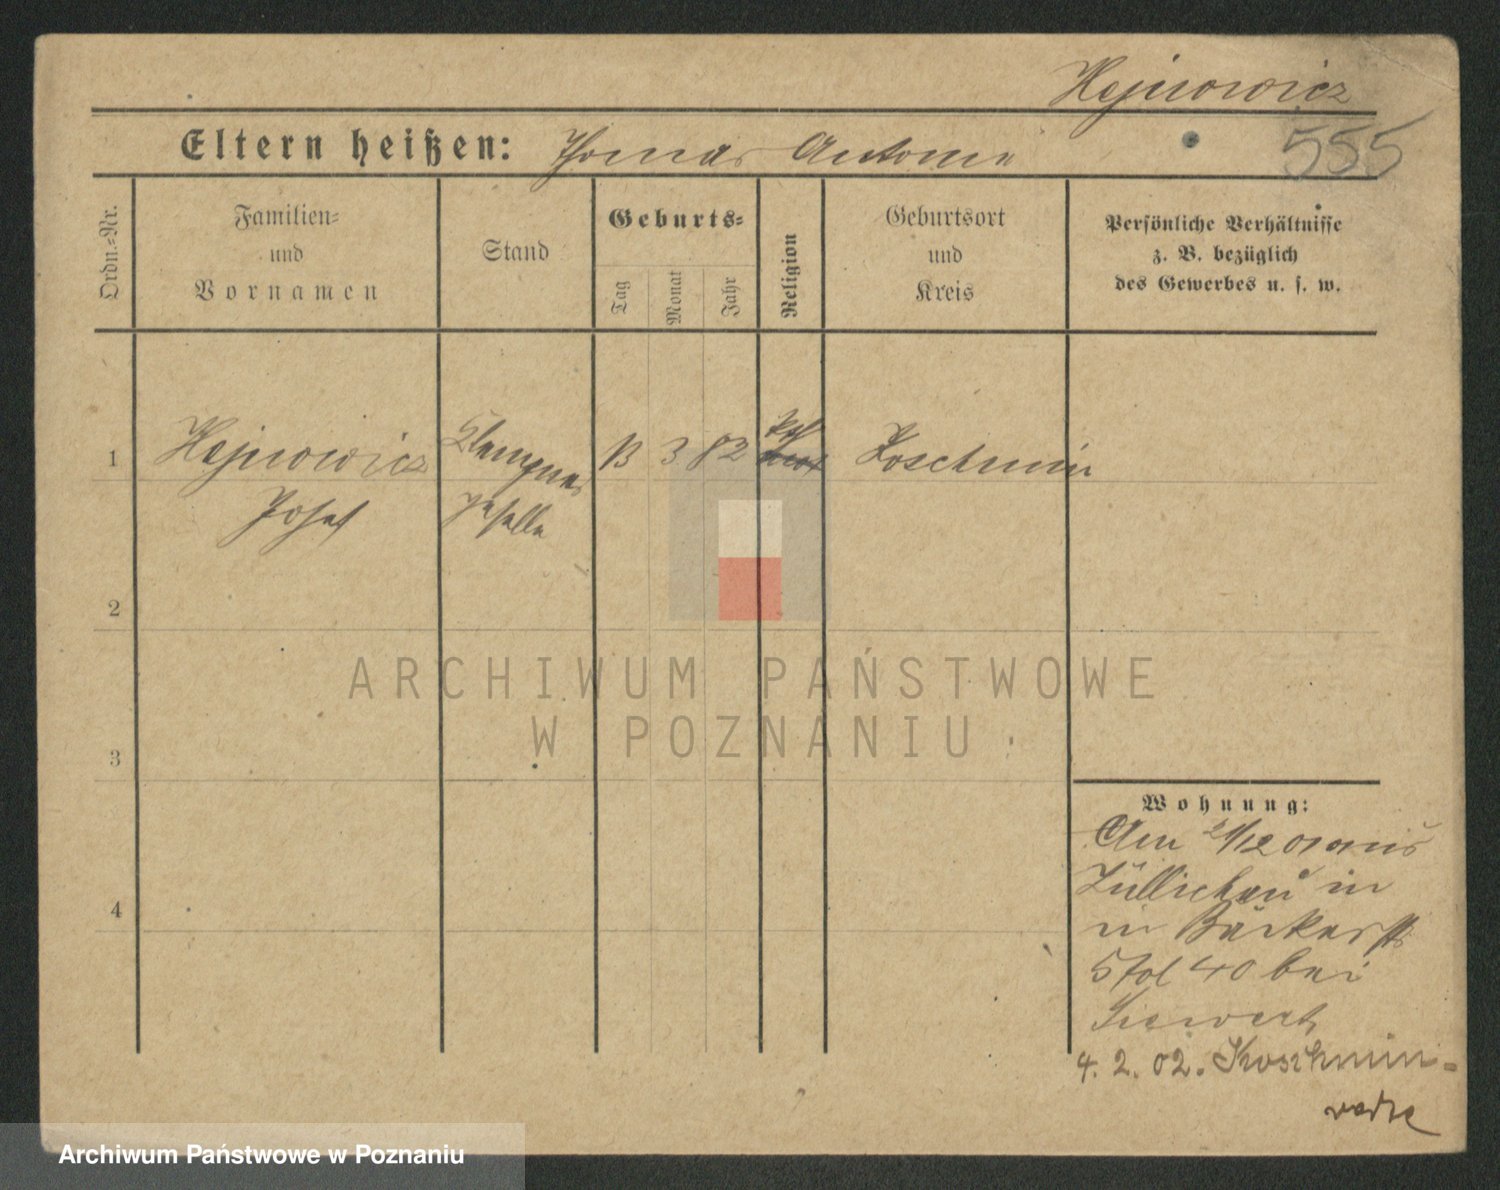 Hejnowicz
Eltern heißen: Thomas Antonie
555
Ordn.=Nr.
Familien=
und
Vornamen
Stand
Geburts=
Tag
Monat
Jahr
Religion
Geburtsort
und
Kreis
Persönliche Verhältnisse
z. B. bezüglich
des Gewerbes u. s. w.
1
Hejnowicz
Josef
Klempner
13 3 82
Koschmin
2
3
4
Wohnung:
Am 21/12 01 aus
Züllichau in
in Bäckerstr
5 bei
Siewert
4. 2. 02. Koschmin
ARCHIWUM PAŃSTWOWE
W POZNANIU
Archiwum Państwowe w Poznaniu